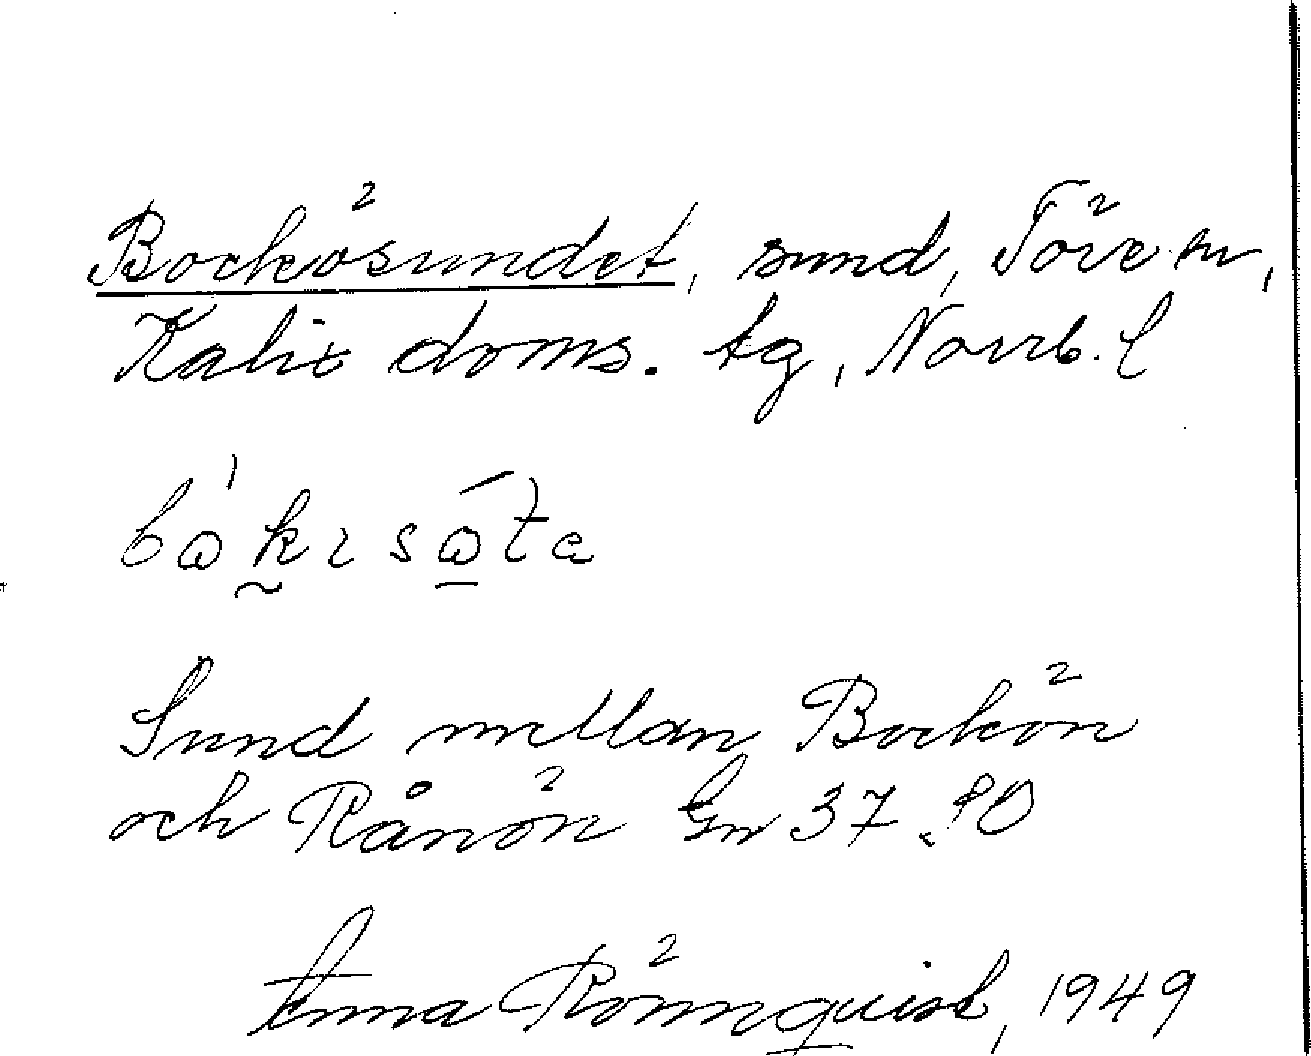 Bockösundet, sund, Töre sn,
Kalix doms. tg, Norrb. l
Sund mellan Bockön
och Rånön Gn 37 .80
Anna Rönnquist, 1949